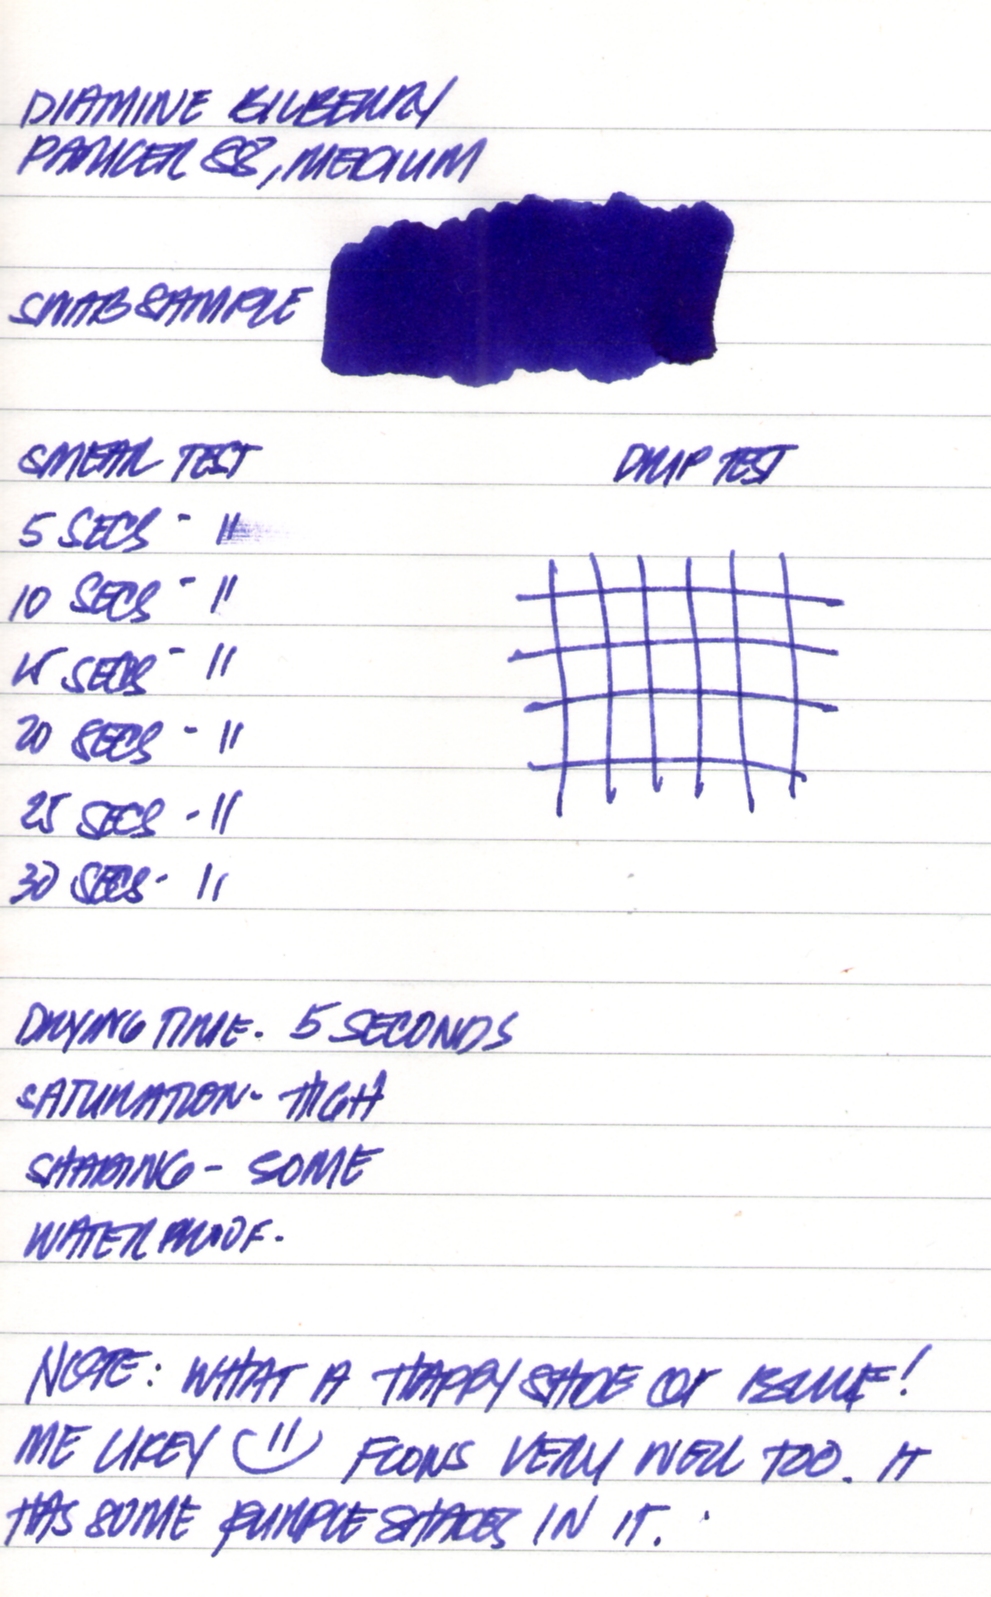 DIAMINE BILBERRY
PARKER 88, MEDIUM
SWAB SAMPLE
SMEAR TEST
DRIP TEST
5 SECS - 11
10 SECS - 11
15 SECS - 11
20 SECS - 11
25 SECS - 11
30 SECS - 11
DRYING TIME - 5 SECONDS
SATURATION - HIGH
SHADING - SOME
WATERPROOF -
NOTE: WHAT A HAPPY SHADE OF BLUE!
ME LIKEY FLOWS VERY WELL TOO. IT
HAS SOME PURPLE SHADES IN IT.